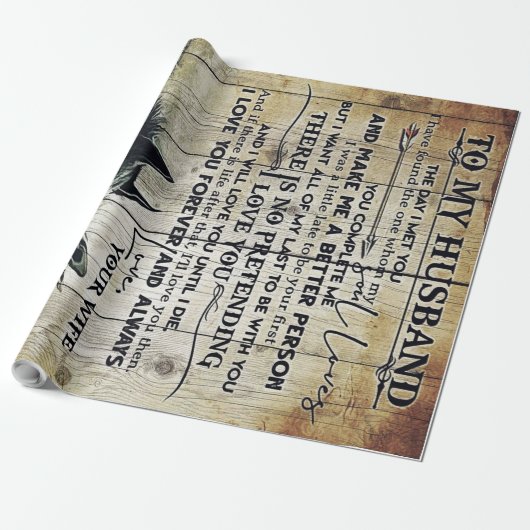 TO MY HUSBAND
THE DAY I MET YOU
I have found the one whom my
soul loves
YOU COMPLETE ME
AND MAKE ME A BETTER PERSON
I was a little late to be your first
BUT I WANT ALL OF MY LAST TO BE WITH YOU
THERE IS NO PRETENDING
I LOVE YOU
AND I WILL LOVE YOU UNTIL I DIE
And if there is life after that, I'll love you then,
I LOVE YOU FOREVER AND ALWAYS
Love,
YOUR WIFE